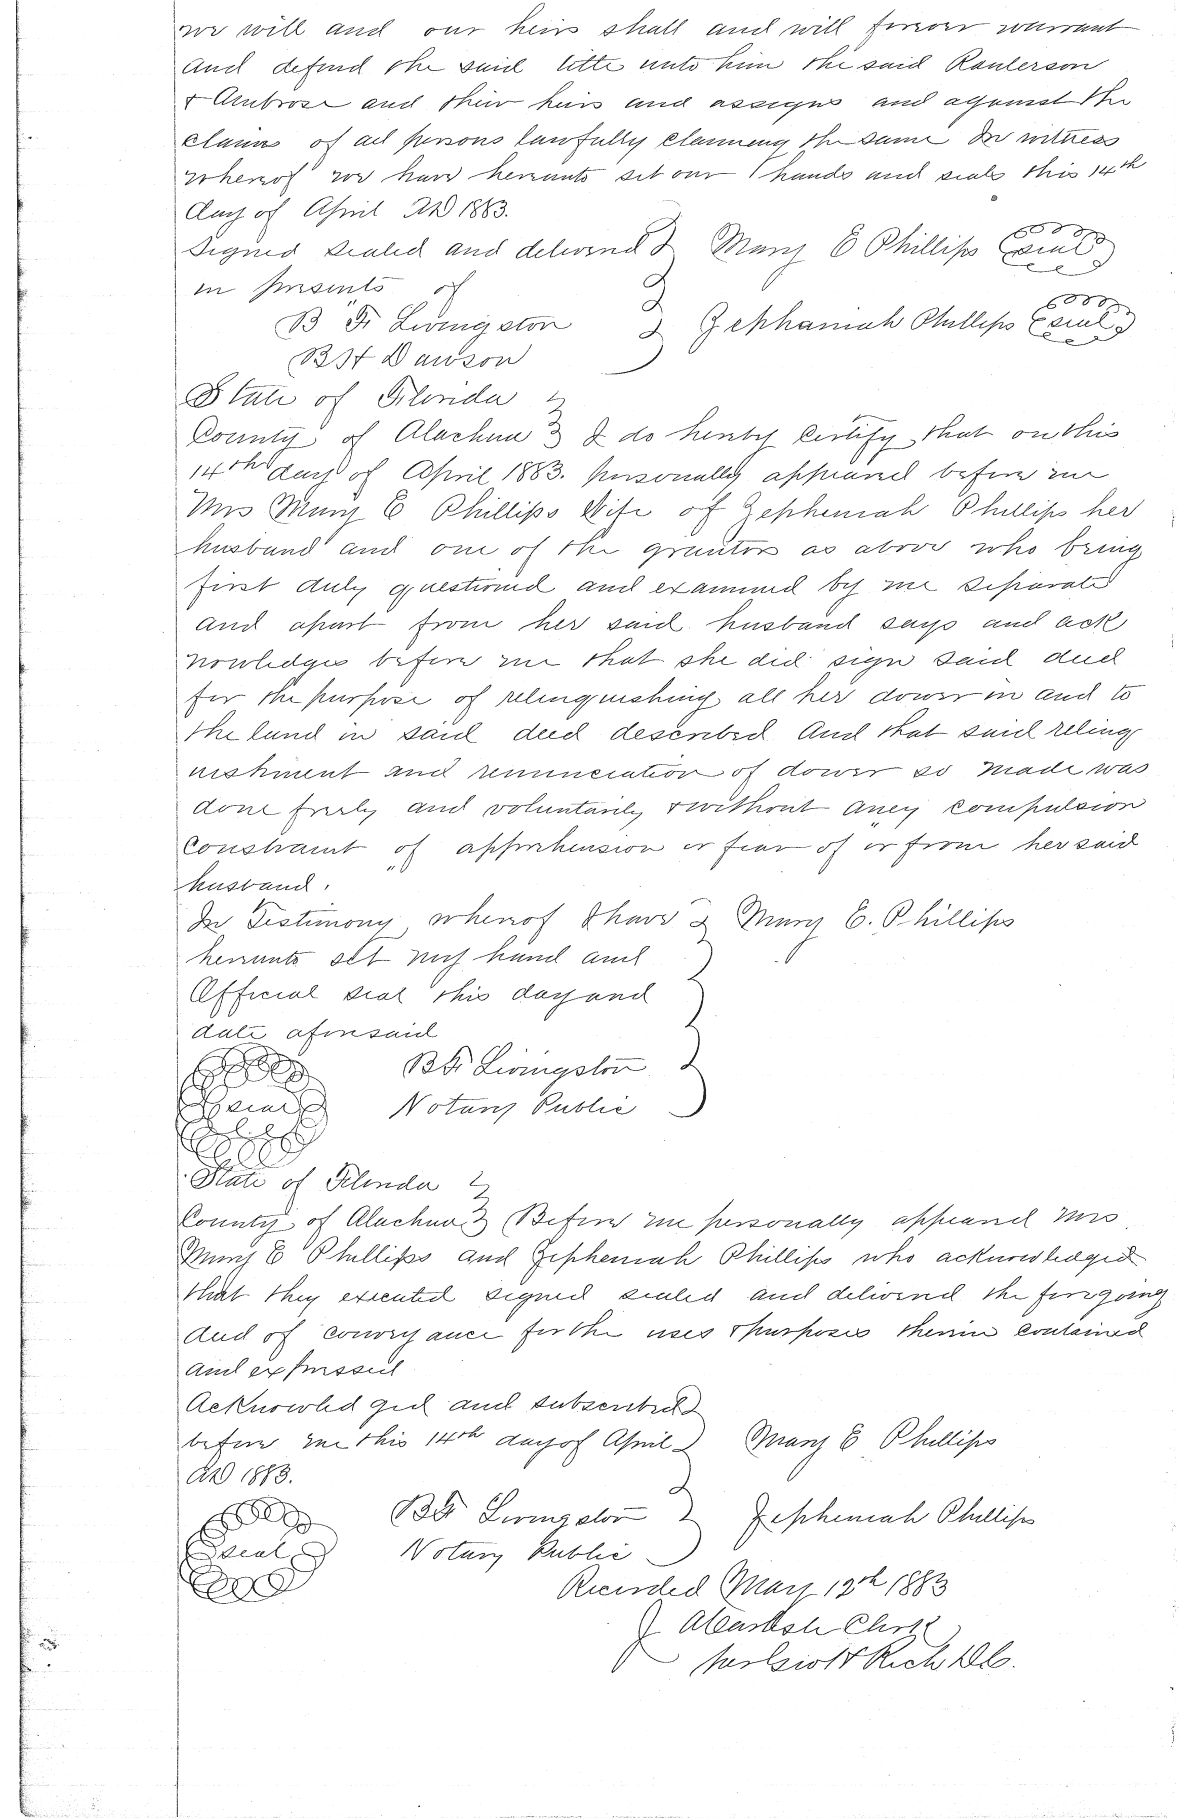 we will and our heirs shall and will forever warrant
and defend the said title unto him the said Raulerson
& Ambrose and their heirs and assigns and against the
claims of all persons lawfully claiming the same In witness
whereof we have hereunto set our hands and seals this 14th
day of April AD 1883.
Signed sealed and delivered Mary E Phillips (seal)
in presents of
B F Livingston Zephaniah Phillips (seal)
B H Dawson
State of Florida
County of Alachua I do hereby Certify that on this
14th day of April 1883. personally appeared before me
Mrs Mary E Phillips Wife of Zepheniah Phillips her
husband and one of the grantors as above who being
first duly questioned and examined by me separate
and apart from her said husband says and ack
nowledges before me that she did sign said deed
for the purpose of relinquishing all her dower in and to
the land in said deed described And that said relinq
uishment and renunciation of dower so made was
done freely and voluntarily & without aney compulsion
Constraint of apprehension or fear of or from her said
husband.
In Testimony whereof I have Mary E. Phillips
hereunto set my hand and
Official seal this day and
date aforesaid
B F Livingston
seal Notary Public
State of Florida
County of Alachua Before me personally appeared Mrs
Mary E Phillips and Zepheniah Phillips who acknowledged
that they executed signed sealed and delivered the foregoing
deed of conveyance for the uses & purposes therein contained
and expressed
Acknowledged and subscribed
before me this 14th day of April Mary E Phillips
AD 1883.
B F Livingston Zepheniah Phillips
seal Notary Public
Recorded May 12th 1883
J A Clerk
per Rich DC.